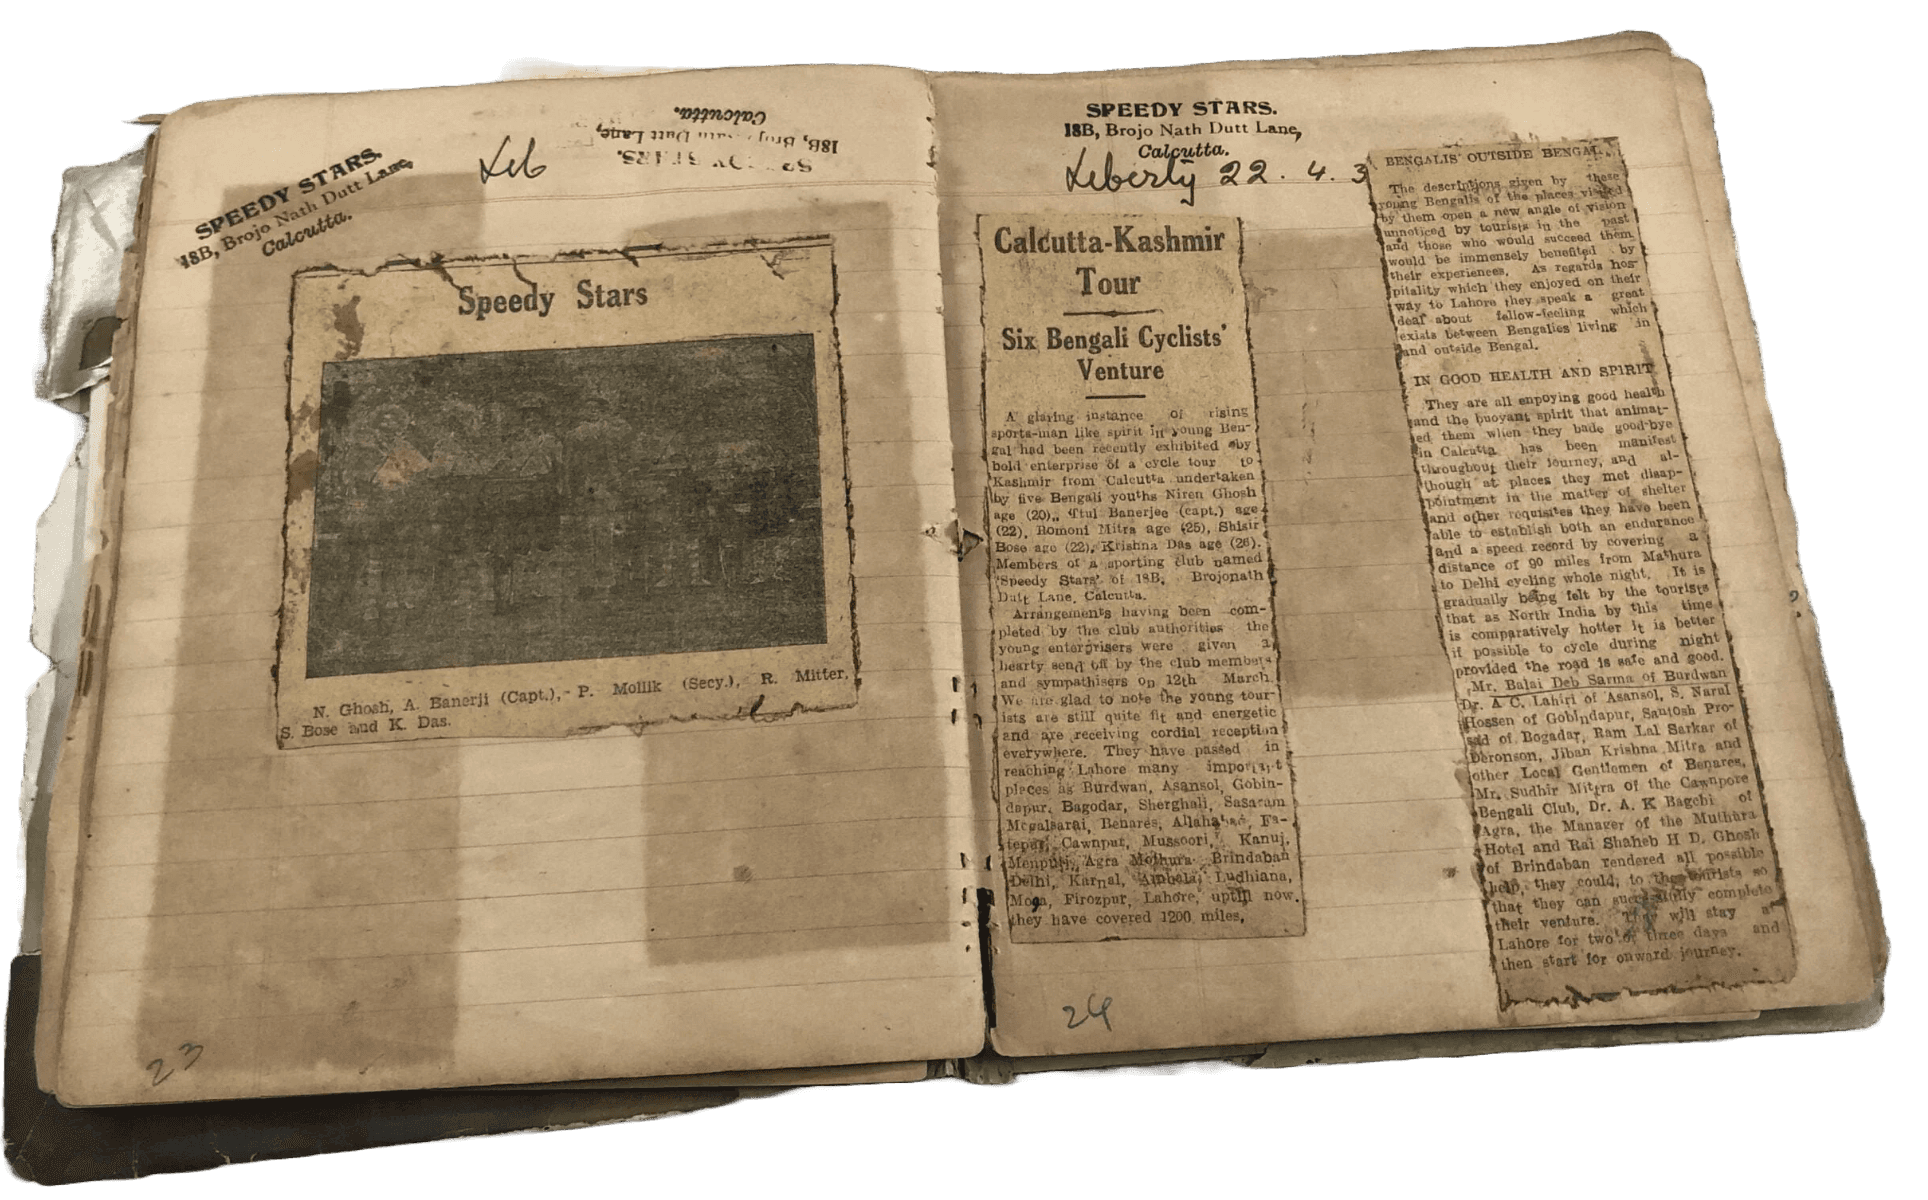 SPEEDY STARS.
18B, Brojo Nath Dutt Lane,
Calcutta.
Lib
SPEEDY STARS.
18B, Brojo Nath Dutt Lane,
Calcutta.
Speedy Stars
N. Ghosh, A. Banerji (Capt.), P. Mollik (Secy.), R. Mitter,
S. Bose and K. Das.
23
SPEEDY STARS.
18B, Brojo Nath Dutt Lane,
Calcutta.
Liberty 22.4.3
Calcutta-Kashmir
Tour
Six Bengali Cyclists'
Venture
A glaring instance of rising
sports-man like spirit in young Ben-
gal had been recently exhibited by
bold enterprise of a cycle tour to
Kashmir from Calcutta undertaken
by five Bengali youths Niren Ghosh
age (20), Banerjee (capt.) age
(22), Romoni Mitra age (25), Shisir
Bose age (22), Krishna Das age (26).
Members of a sporting club named
'Speedy Stars' of 18B, Brojonath
Dutt Lane, Calcutta.
Arrangements having been com-
pleted by the club authorities the
young enterprisers were given a
hearty send off by the club members
and sympathisers on 12th March.
We are glad to note the young tour-
ists are still quite fit and energetic
and are receiving cordial reception
everywhere. They have passed in
reaching Lahore many important
places as Burdwan, Asansol, Gobin-
dapur, Bagodar, Sherghali, Sasaram
Mogalsarai, Benares, Allahabad, Fa-
tepur, Cawnpur, Mussoori, Kanuj,
Agra Mothura Brindaban
Delhi, Karnal, Ambala, Ludhiana,
Moga, Firozpur, Lahore, uptill now.
they have covered 1200 miles.
24
BENGALIS OUTSIDE BENGAL.
The descriptions given by these
young Bengalis of the places visited
by them open a new angle of vision
unnoticed by tourists in the past
and those who would succeed them
would be immensely benefited by
their experiences. As regards hos-
pitality which they enjoyed on their
way to Lahore they speak a great
deal about fellow-feeling which
exists between Bengalies living in
and outside Bengal.
IN GOOD HEALTH AND SPIRIT
They are all enpoying good health
and the buoyant spirit that animat-
ed them when they bade good-bye
in Calcutta has been manifest
throughout their journey, and al-
though at places they met disap-
pointment in the matter of shelter
and other requisites they have been
able to establish both an endurance
and a speed record by covering a
distance of 90 miles from Mathura
to Delhi cycling whole night. It is
gradually being felt by the tourists
that as North India by this time
is comparatively hotter it is better
if possible to cycle during night
provided the road is safe and good.
Mr. Balai Deb Sarma of Burdwan
Dr. A. C. Lahiri of Asansol, S. Narul
Hossen of Gobindapur, Santosh Pro-
sad of Bogadar, Ram Lal Sarkar of
Deronson, Jiban Krishna Mitra and
other Local Gentlemen of Benares,
Mr. Sudhir Mittra of the Cawnpore
Bengali Club, Dr. A. K Bagchi of
Agra, the Manager of the Muthara
Hotel and Rai Shaheb H D. Ghosh
of Brindaban rendered all possible
help, they could, to the tourists so
that they can successfully complete
their venture. They will stay at
Lahore for two or three days and
then start for onward journey.